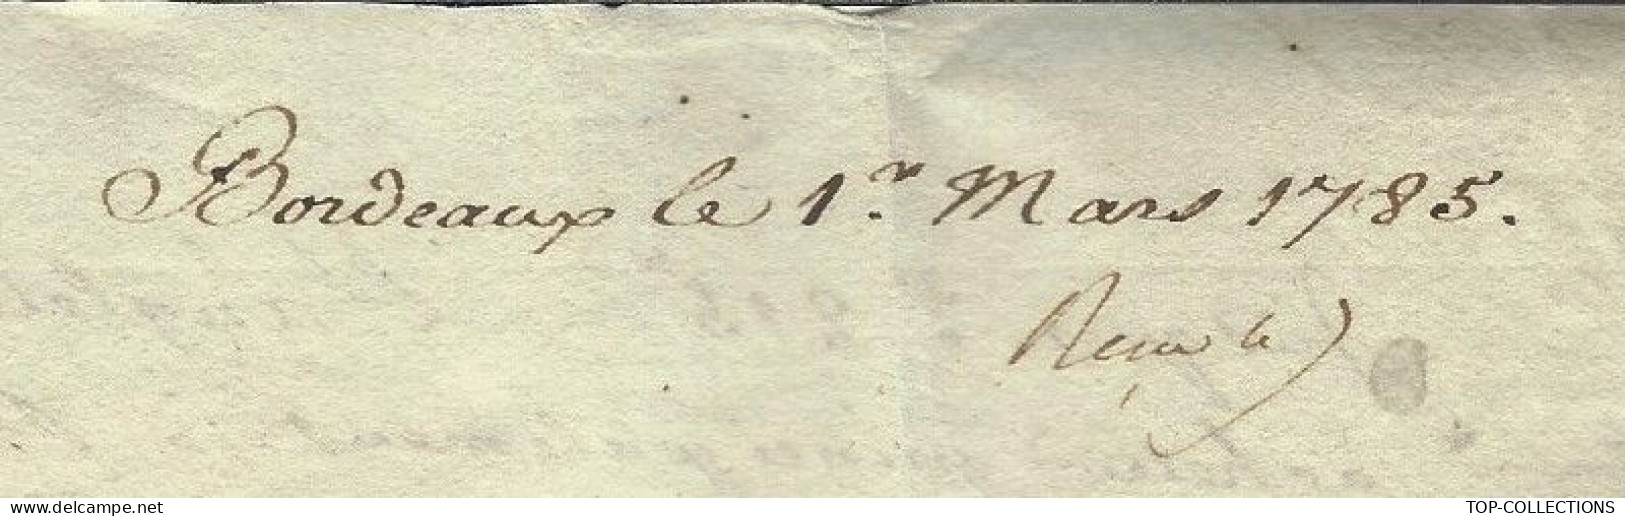 Bordeaux le 1.r Mars 1785.
Reçu le 9
delcampe.net
TOP-COLLECTIONS